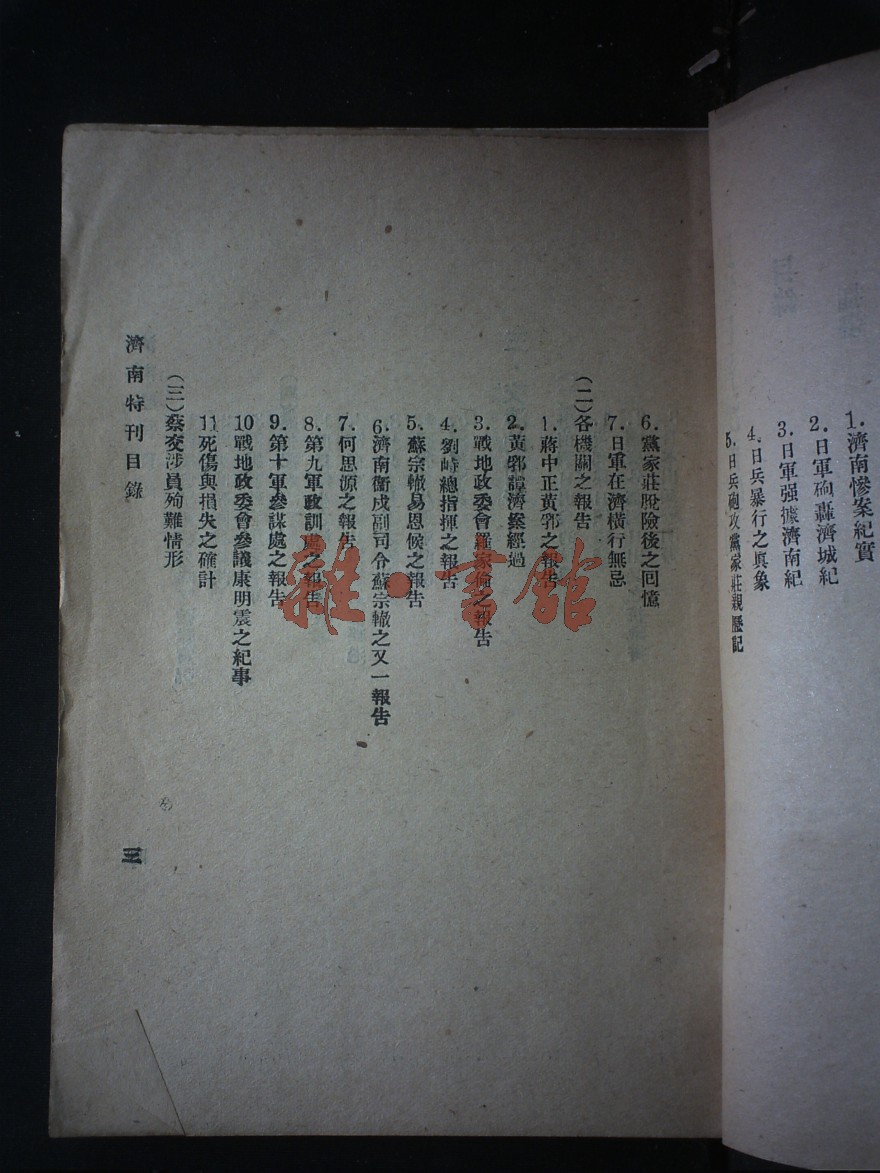 1.濟南慘案紀實
2.日軍砲轟濟城紀
3.日軍强據濟南紀
4.日兵暴行之眞象
5.日兵砲攻黨家莊親歷記
6.黨家莊脫險後之回憶
7.日軍在濟橫行無忌
(二)各機關之報告
1.蔣中正黃郛之報告
2.黃郛譚濟案經過
3.戰地政委會羅家倫之報告
4.劉峙總指揮之報告
5.蘇宗轍易恩候之報告
6.濟南衞戍副司令蘇宗轍之又一報告
7.何思源之報告
8.第九軍政訓處之報告
9.第十軍參謀處之報告
10戰地政委會參議康明震之紀事
11死傷與損失之確計
(三)蔡交涉員殉難情形
濟南特刊目錄
三
雜·書館